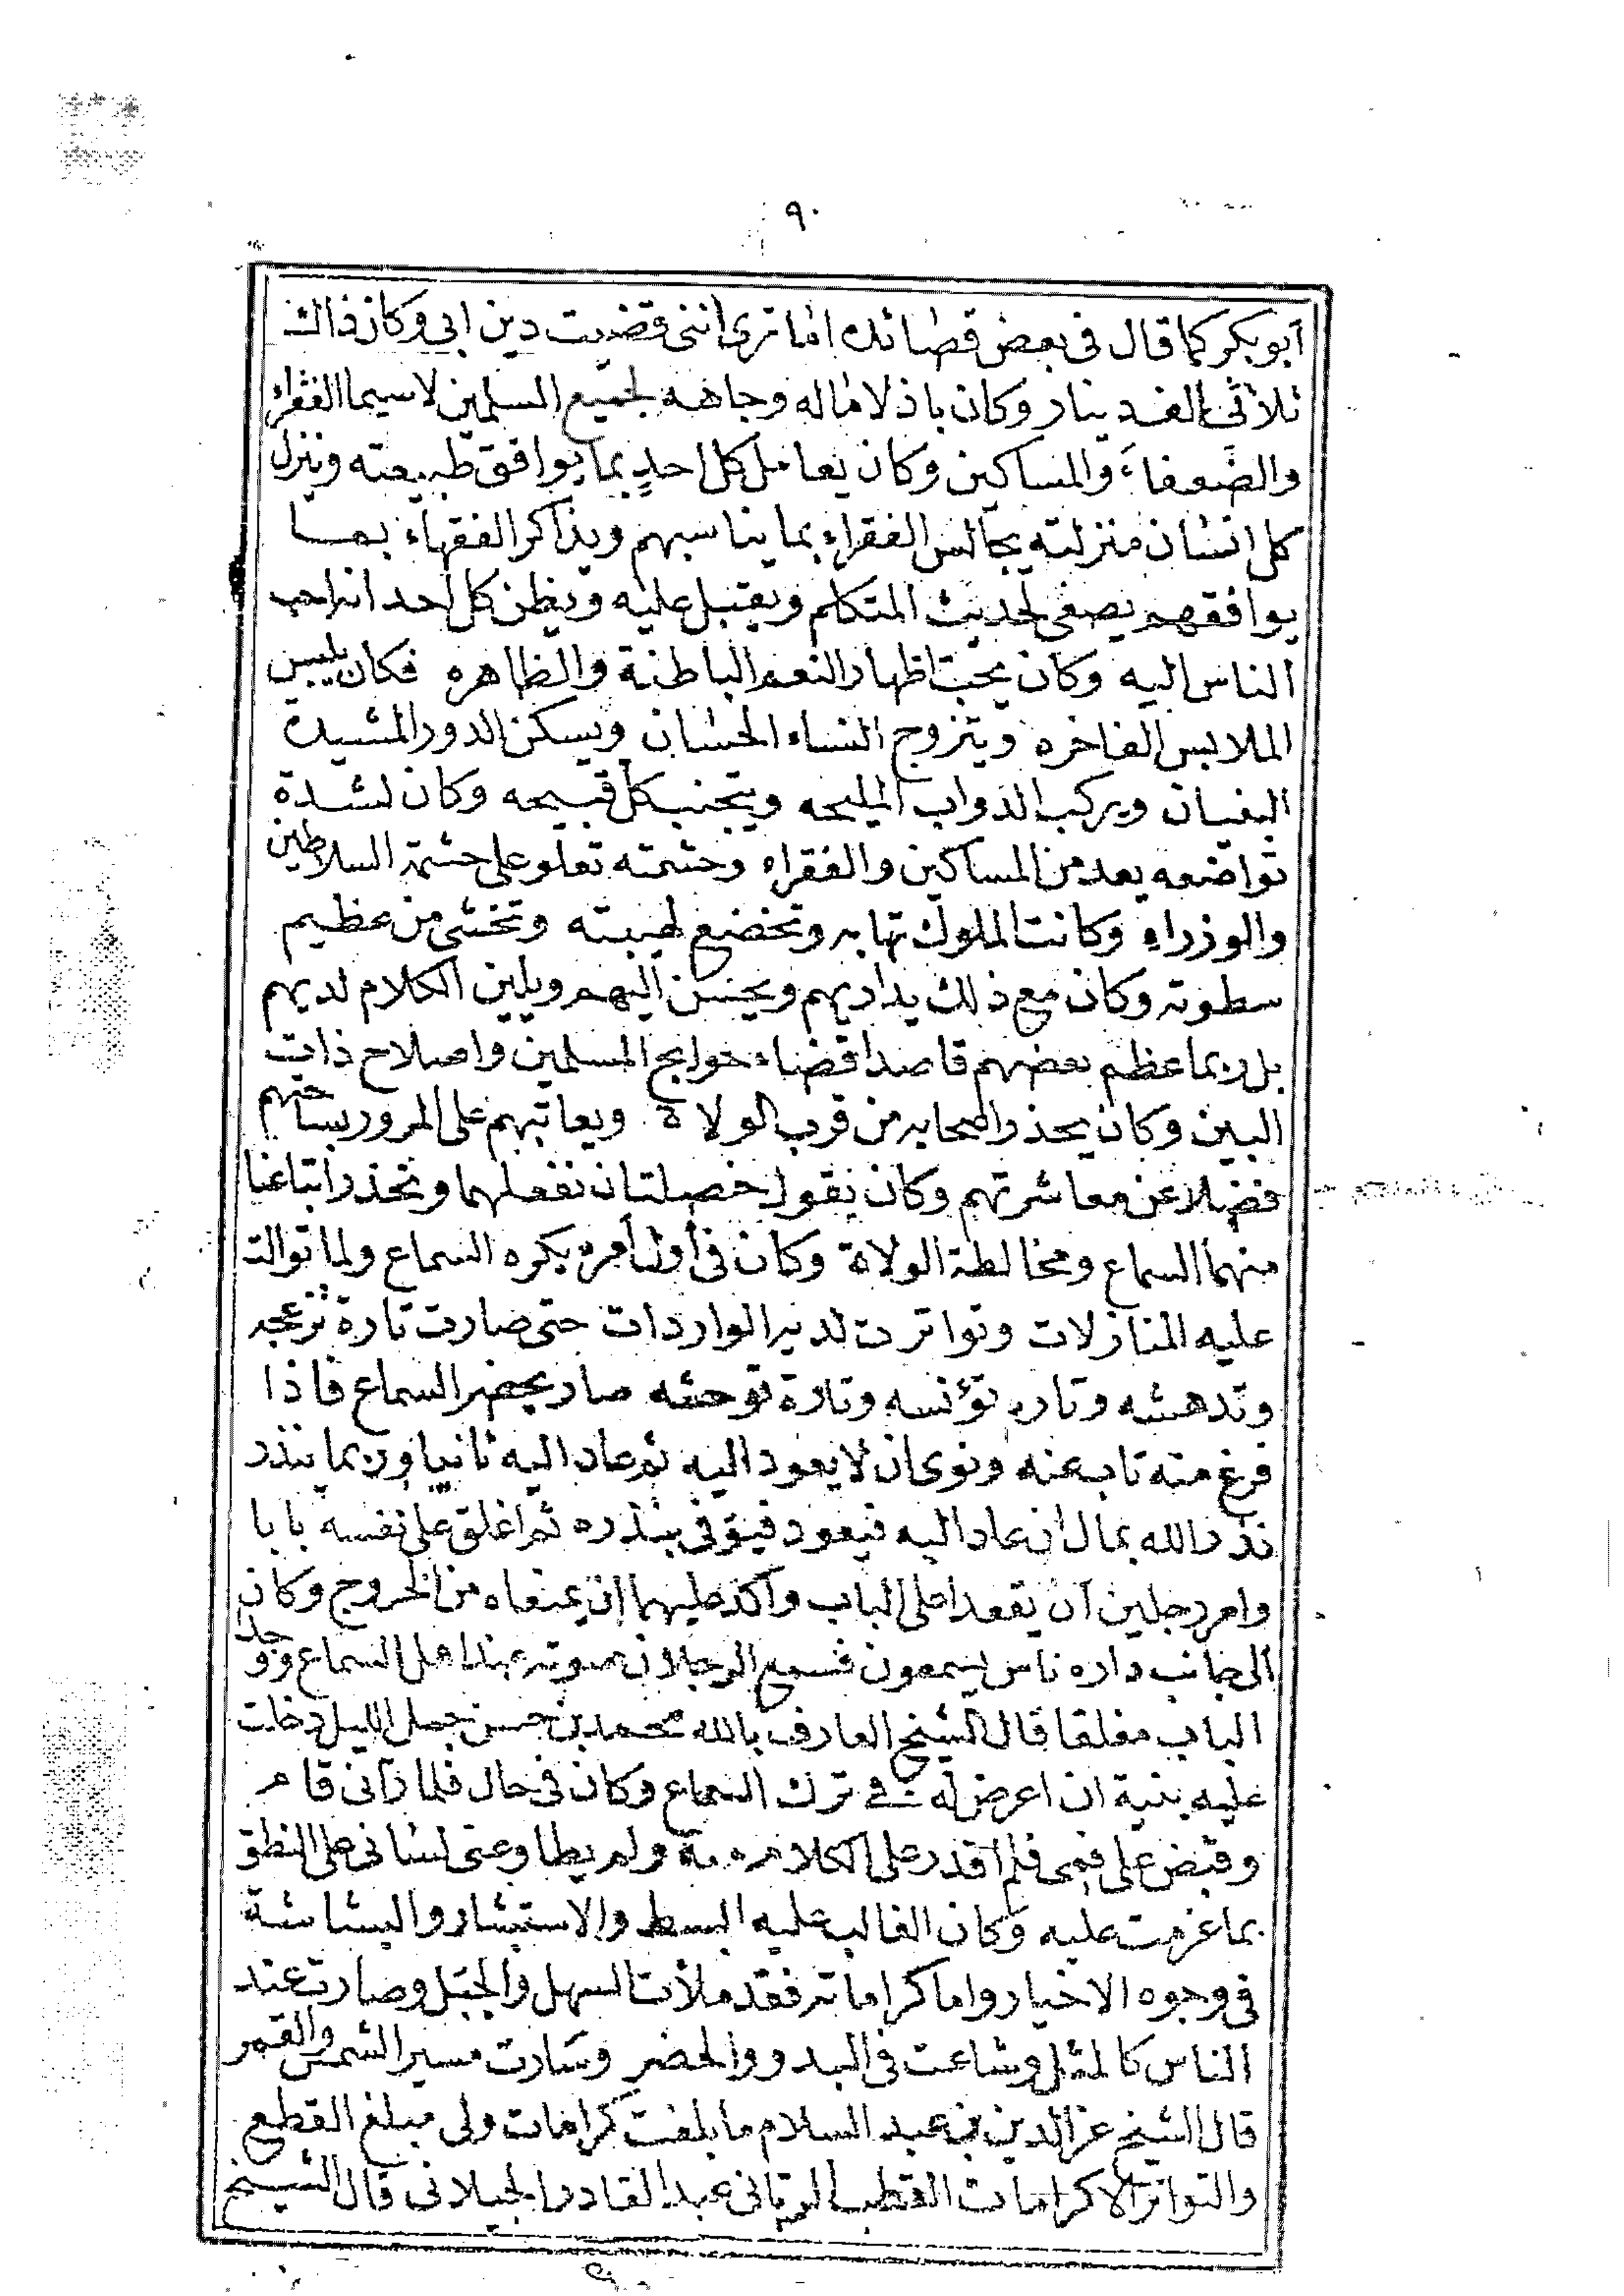 ٩٠
ابو بكر كما قال في بعض قصائده اما ترى انني قضيت دين ابي وكان ذاك
ثلاثين الف دينار وكان باذلا ماله وجاهه لجميع المسلمين لاسيما الفقراء
والضعفاء والمساكين وكان يعامل كل احدٍ بما يوافق طبيعته وينزل
كل انسان منزلته يجالس الفقراء بما يناسبهم ويذاكر الفقهاء بمــا
يوافقهم يصغي لحديث المتكلم ويقبل عليه ويظن كل احد انه احب
الناس اليه وكان يحب اظهار النعم الباطنة والظاهره فكان يلبس
الملابس الفاخره ويتزوج النساء الحسان ويسكن الدور المشيدة
البنيان ويركب الدواب المليحه ويتجنب كل قبيحه وكان لشدة
تواضعه يعد من المساكين والفقراء وحشمته تعلو على حشمة السلاطين
والوزراء وكانت الملوك تهابه وتخضع لهيبته وتخشى من عظيم
سطوته وكان مع ذلك يداريهم ويحسن اليهم ويلين الكلام لديهم
بل ربما عظم بعضهم قاصدا قضاء حوايج المسلمين واصلاح ذات
البين وكان يحذر اصحابه من قرب الولاة ويعاتبهم على المرور بساحتهم
فضلا عن معاشرتهم وكان يقول خصلتان نفعلهما ونحذر اتباعنا
منهما السماع ومخالطة الولاة وكان في اول أمره يكره السماع ولما توالت
عليه المنازلات وتواترت لديه الواردات حتى صارت تارة تزعجه
وتدهشه وتاره تؤنسه وتارة توحشه صار يحضر السماع فاذا
فرغ منه تاب عنه ونوى ان لا يعود اليه ثم عاد اليه ثانيا وربما ينذر
نذرا لله بمال ان عاد اليه فيعود فيوفي بنذره ثم اغلق على نفسه بابا
وامر رجلين ان يقعدا على الباب وأكد عليهما ان يمنعاه من الخروج وكان
الى جانب داره ناس يسمعون فسمع الرجلان صوته عند اهل السماع ووجدا
الباب مغلقا قال الشيخ العارف بالله محمد بن حسن جمل الليل دخلت
عليه بنية ان اعرض له في ترك السماع وكان في حال فلما رآني قام
وقبض على فمي فلم اقدر على الكلام ولم يطاوعني لساني على النطق
بما عزمت عليه وكان الغالب عليه البسط والاستبشار والبشاشة
في وجوه الاخيار واما كراماته فقد ملأت السهل والجبل وصارت عند
الناس كالمثل وشاعت في البدو والحضر وسارت مسير الشمس والقمر
قال الشيخ عز الدين بن عبد السلام ما بلغت كرامات ولي مبلغ القطع
والتواتر الا كرامات القطب الرباني عبد القادر الجيلاني قال الشيخ